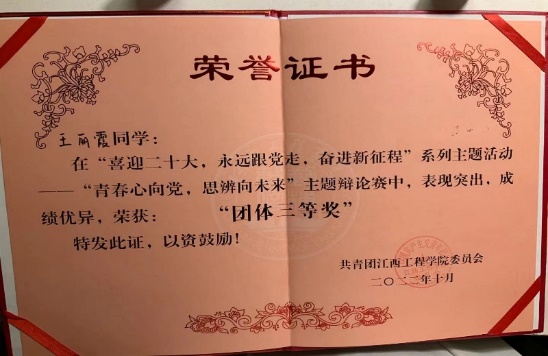 荣誉证书
王丽霞同学：
在“喜迎二十大，永远跟党走，奋进新征程”系列主题活动
——“青春心向党，思辨向未来”主题辩论赛中，表现突出，成
绩优异，荣获： “团体三等奖”
特发此证，以资鼓励！
共青团江西工程学院委员会
二〇二二年十月